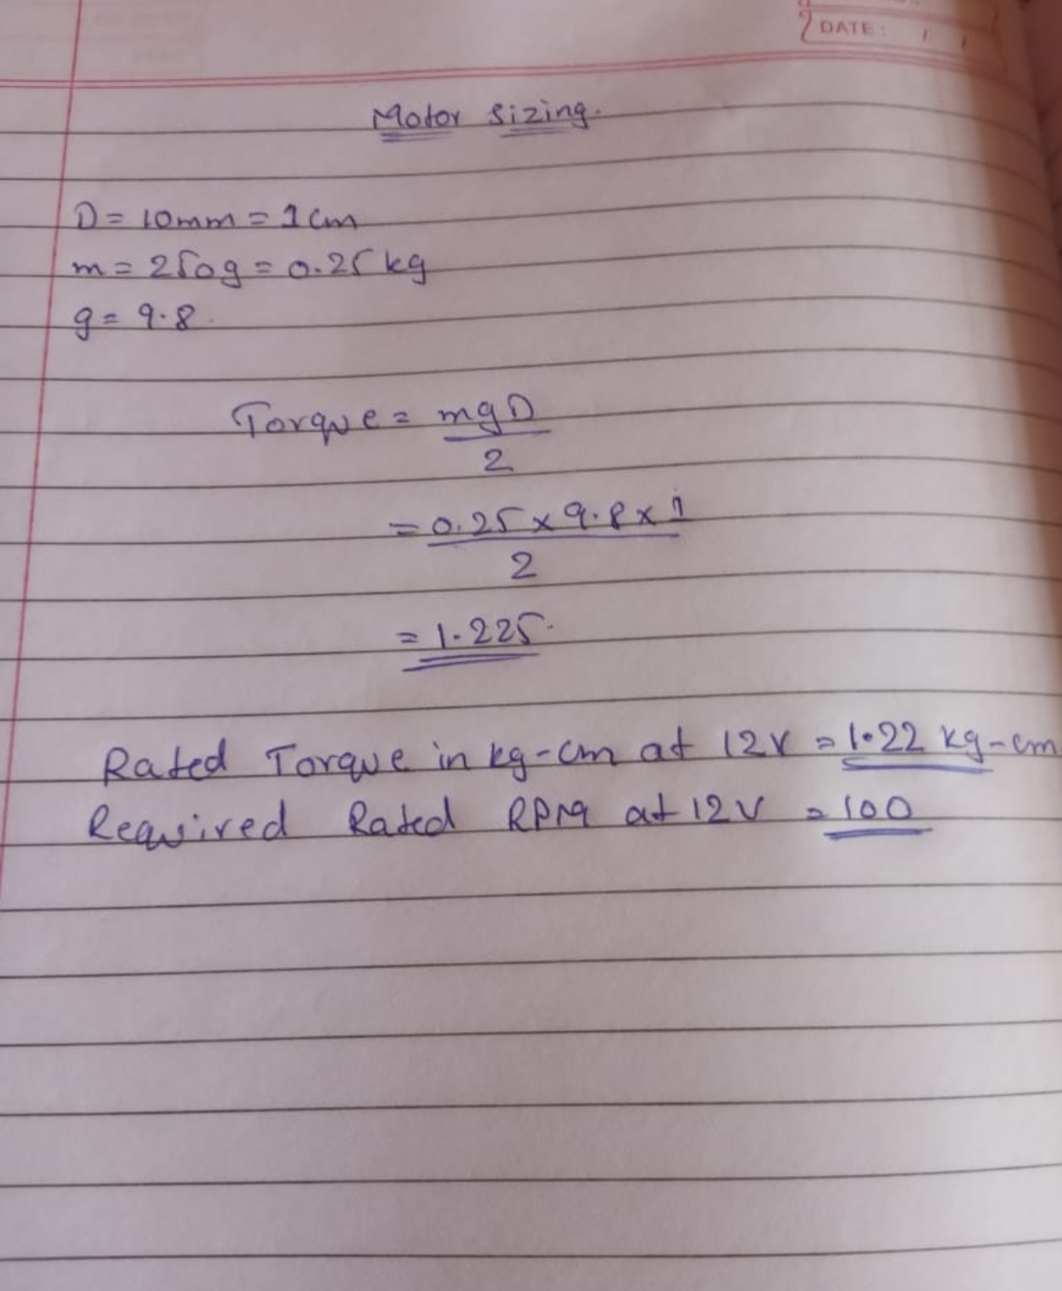 DATE: / /
Motor sizing.
D = 10mm = 1cm
m = 250g = 0.25 kg
g = 9.8
Torque = mgD
2
= 0.25 x 9.8 x 1
2
= 1.225.
Rated Torque in kg-cm at 12V = 1.22 kg-cm
Required Rated RPM at 12V = 100